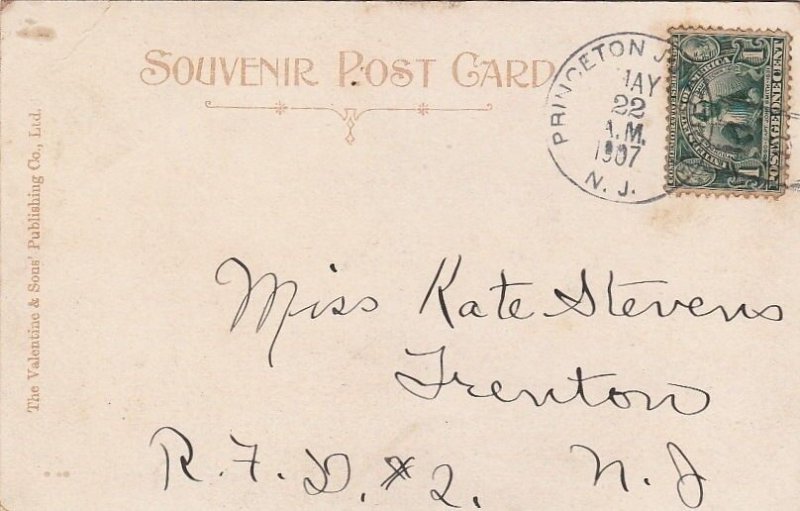 SOUVENIR POST CARD
PRINCETON
MAY
22
A.M.
1907
N. J.
POSTAGE ONE CENT
1
1
The Valentine & Sons' Publishing Co., Ltd.
Miss Kate Stevens
Trenton
R. F. D. #2. N. J